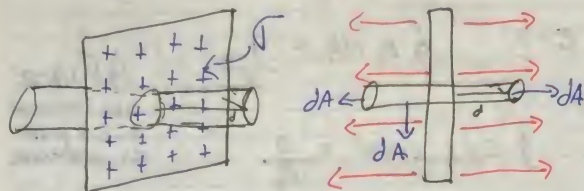 σ
+ + + +
+ + + +
+ + + d
+ + + +
+ + +
dA dA
d
dA